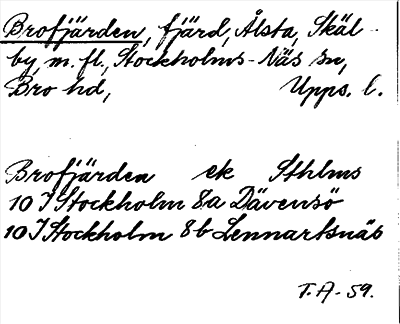 Brofjärden, fjärd, Ålsta, Skäl-
by, m. fl., Stockholms-Näs sn,
Bro hd, Upps. l.
Brofjärden ek Sthlms
10 I Stockholm 8a Dävensö
10 I Stockholm 8b Lennartsnäs
T. A. - 59.